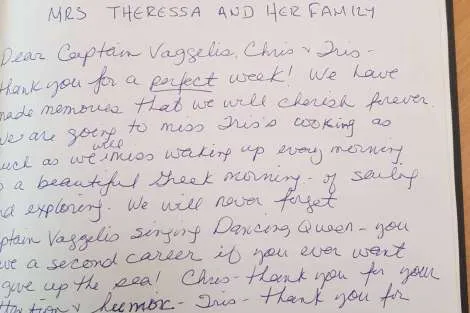 MRS THERESSA AND HER FAMILY
Dear Captain Vaggelis, Chris & Iris -
thank you for a perfect week! We have
made memories that we will cherish forever.
We are going to miss Iris's cooking as
much as we will miss waking up every morning
to a beautiful Greek morning - of sailing
and exploring. We will never forget
Captain Vaggelis singing Dancing Queen - you
have a second career if you ever want
give up the sea! Chris - thank you for your
& humor - Iris - thank you for